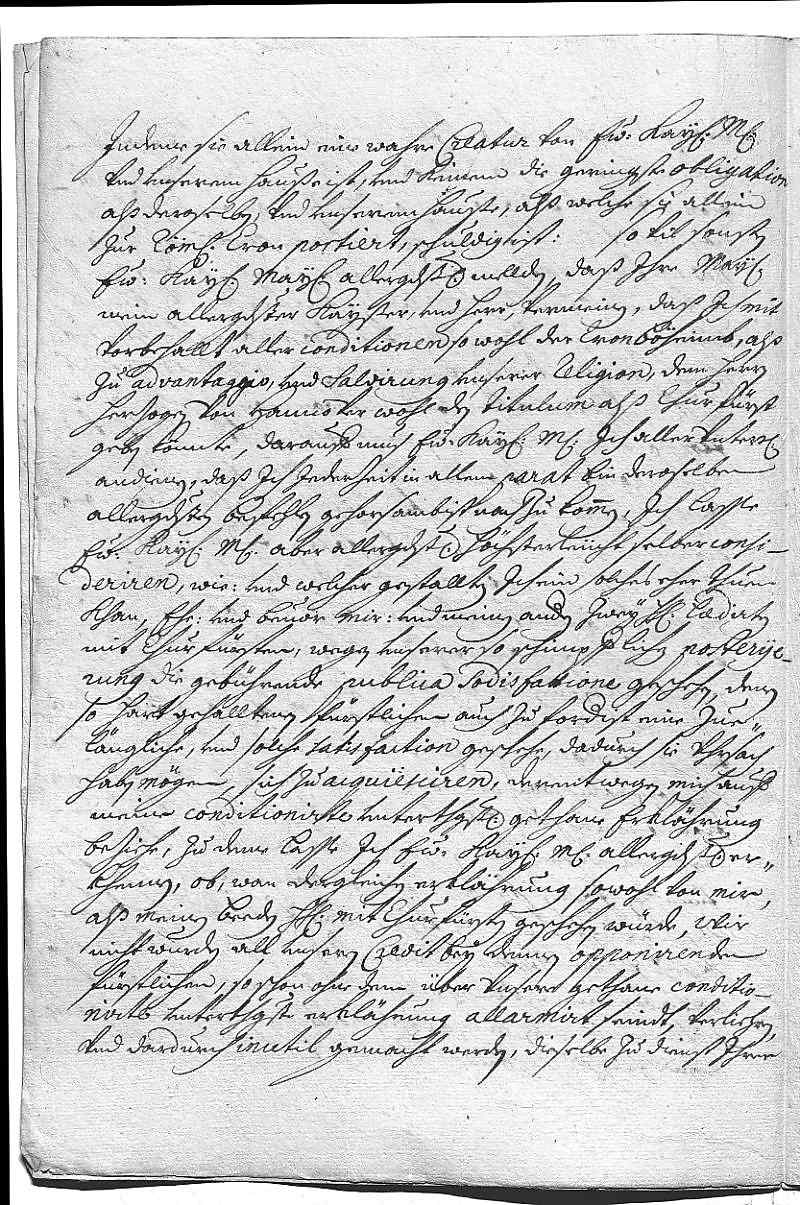 Indeme sie allein eine wahre Creatur von Ew: Kay: M:
vnd vnserem Hausse ist, vnd keinem die geringste obligation
alß deroselben, vnd vnserem Hausse, alß welche sie allein
zur Röm: Cron portiert, schuldig ist: so vil sonsten
Ew: Kay: May: allergdst melden, daß Ihre May:
mein allergdster Kayser, vnd Herr, vermeinen, daß Ich mit
vorbehallt aller conditionen so wohl der Cron Böheimb, alß
zu advantaggio, vnd salvirung vnserer Religion, dem Herrn
Herzogen von Hannover wohl den titulum alß Churfürst
geben könnte, darauf muß Ew: Kay: M: Ich aller
andienen, daß Ich Jederzeit in allem parat bin deroselben
allergdsten befehlen gehorsambist nach zu kommen, Ich lasse
Ew: Kay: M: aber allergdst höchsterleücht selber consi-
deriren, wie: vnd welcher gestallten Ich ein solches eher thuen
khan, Ehe: vnd bevor mir: vnd meinen andern zwey HH: lædirten
mit Churfürsten, wegen vnserer so schimpflichen posterije-
rung die gebührende publica sodisfatione geschehen, denen
so hart gehalltenen Fürstlichen auch zu fordist eine zue-
längliche, vnd solche satisfaction geschehe, dadurch sie Vhrsach
haben mögen, sich zu acquiesciren, derentwegen mich auf
meine conditionirte vnterthgst gethane Erklährung
beziehe, zu deme lasse Ich Ew: Kay: M: allergdst er-
khennen, ob, wan dergleichen erklährung sowohl von mir,
alß meinen beeden HH: mit Churfürsten geschehen würde, Wir
nicht wurden all vnseren Credit bey denen opponirenden
Fürstlichen, so schon ohne dem über vnsere gethane conditio-
nirte vnterthgste erklährung allarmirt seindt, verliehren,
vnd dardurch inutil gemacht werden, dieselbe zu dienst Ihrer